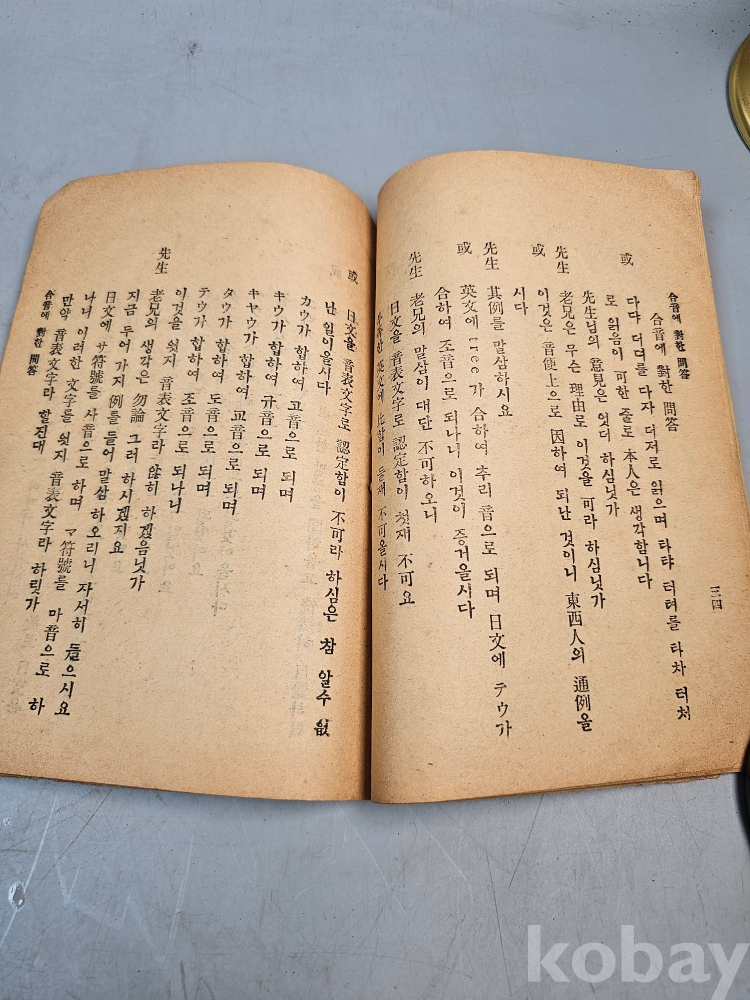 合音에 對한 問答
三四
合音에 對한 問答
다댜 더뎌를 다쟈 더져로 읽으며 타탸 터텨를 타챠 터쳐
로 읽음이 可한 줄로 本人은 생각합니다
或 先生님의 意見은 엇더 하심닛가
先生 老兄은 무슨 理由로 이것을 可라 하심닛가
或 이것은 音便上으로 因하여 되난 것이니 東西人의 通例올
시다
先生 其例를 말삼하시요
或 英文에 tree가 合하여 추리 音으로 되며 日文에 テウ가
合하여 조音으로 되나니 이것이 증거올시다
先生 老兄의 말삼이 대단 不可하오니
日文을 音表文字로 認定함이 첫재 不可요
英文에 比함이 둘재 不可올시다
或 日文을 音表文字로 認定함이 不可라 하심은 참 알수 없
난 일이올시다
カウ가 합하여 고音으로 되며
キウ가 합하여 규音으로 되며
キヤウ가 합하여 교音으로 되며
タウ가 합하여 도音으로 되며
テウ가 합하여 조音으로 되나니
이것을 엇지 音表文字라 않히 하겠음닛가
先生 老兄의 생각은 勿論 그러 하시겠지요
지금 두어 가지 例를 들어 말삼 하오리니 자서히 들으시요
日文에 サ符號를 사音으로 하며 マ符號를 마音으로 하
나니 이러한 文字를 엇지 音表文字라 하릿가
만약 音表文字라 할진대
合音에 對한 問答
kobay